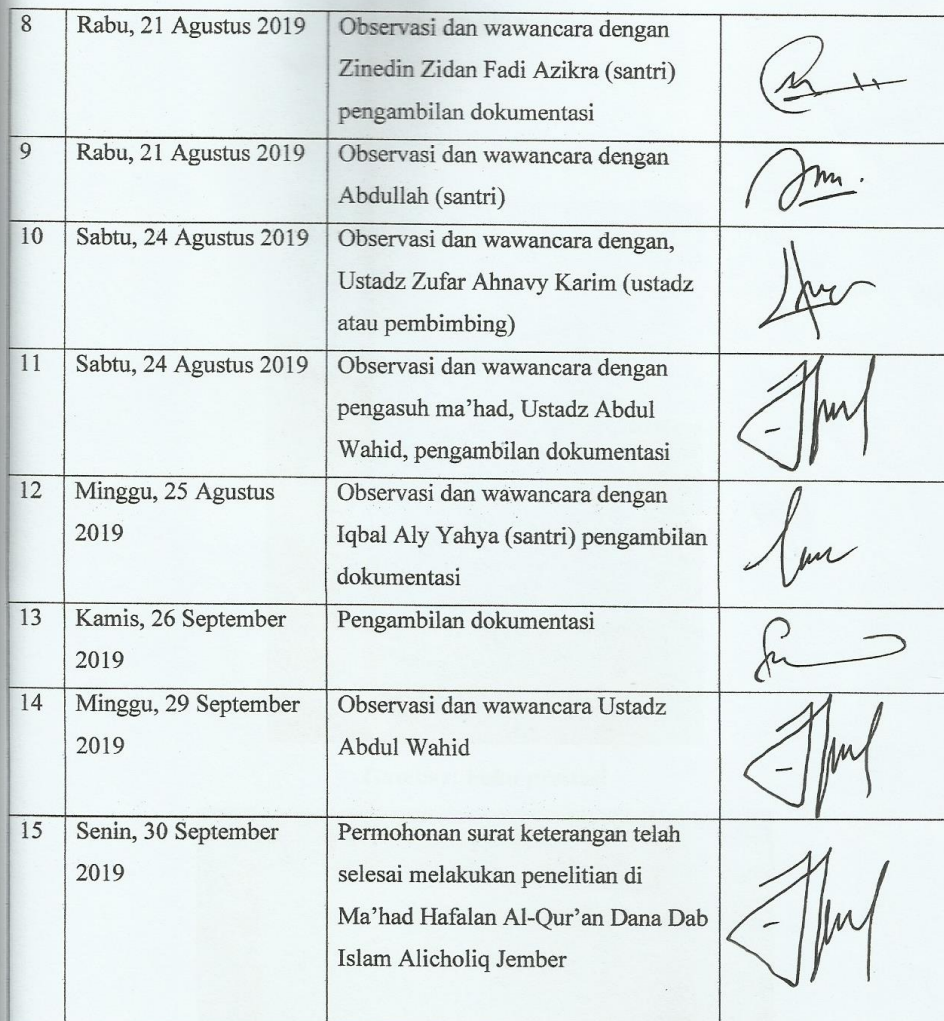 8 Rabu, 21 Agustus 2019 Observasi dan wawancara dengan
Zinedin Zidan Fadi Azikra (santri)
pengambilan dokumentasi
9 Rabu, 21 Agustus 2019 Observasi dan wawancara dengan
Abdullah (santri)
10 Sabtu, 24 Agustus 2019 Observasi dan wawancara dengan,
Ustadz Zufar Ahnavy Karim (ustadz
atau pembimbing)
11 Sabtu, 24 Agustus 2019 Observasi dan wawancara dengan
pengasuh ma'had, Ustadz Abdul
Wahid, pengambilan dokumentasi
12 Minggu, 25 Agustus Observasi dan wawancara dengan
2019 Iqbal Aly Yahya (santri) pengambilan
dokumentasi
13 Kamis, 26 September Pengambilan dokumentasi
2019
14 Minggu, 29 September Observasi dan wawancara Ustadz
2019 Abdul Wahid
15 Senin, 30 September Permohonan surat keterangan telah
2019 selesai melakukan penelitian di
Ma'had Hafalan Al-Qur'an Dana Dab
Islam Alicholiq Jember